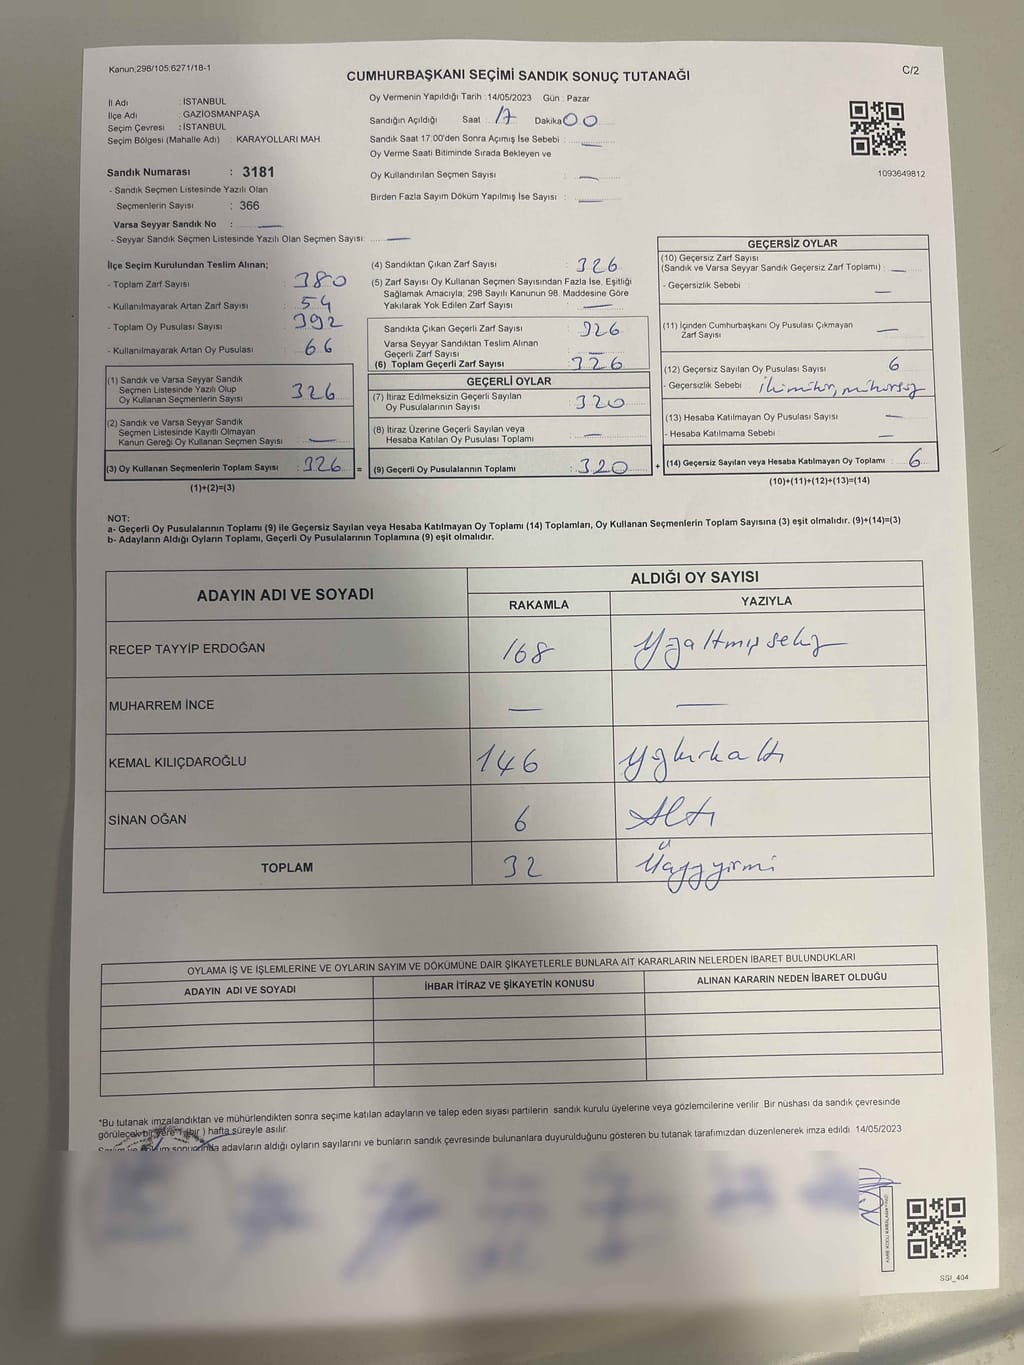 Kanun;298/105,6271/18-1
CUMHURBAŞKANI SEÇİMİ SANDIK SONUÇ TUTANAĞI
C/2
İl Adı : İSTANBUL
İlçe Adı : GAZİOSMANPAŞA
Seçim Çevresi : İSTANBUL
Seçim Bölgesi (Mahalle Adı) : KARAYOLLARI MAH
Sandık Numarası : 3181
- Sandık Seçmen Listesinde Yazılı Olan
Seçmenlerin Sayısı : 366
Varsa Seyyar Sandık No : —
- Seyyar Sandık Seçmen Listesinde Yazılı Olan Seçmen Sayısı: —
Oy Vermenin Yapıldığı Tarih :14/05/2023 Gün : Pazar
Sandığın Açıldığı Saat : 17 Dakika 00
Sandık Saat 17:00'den Sonra Açımış İse Sebebi : —
Oy Verme Saati Bitiminde Sırada Bekleyen ve
Oy Kullandırılan Seçmen Sayısı : —
Birden Fazla Sayım Döküm Yapılmış İse Sayısı : —
1093649812
İlçe Seçim Kurulundan Teslim Alınan;
- Toplam Zarf Sayısı : 380
- Kullanılmayarak Artan Zarf Sayısı : 54
- Toplam Oy Pusulası Sayısı : 392
- Kullanılmayarak Artan Oy Pusulası : 66
(1) Sandık ve Varsa Seyyar Sandık
Seçmen Listesinde Yazılı Olup
Oy Kullanan Seçmenlerin Sayısı : 326
(2) Sandık ve Varsa Seyyar Sandık
Seçmen Listesinde Kayıtlı Olmayan
Kanun Gereği Oy Kullanan Seçmen Sayısı : —
(3) Oy Kullanan Seçmenlerin Toplam Sayısı : 326 =
(1)+(2)=(3)
(4) Sandıktan Çıkan Zarf Sayısı : 326
(5) Zarf Sayısı Oy Kullanan Seçmen Sayısından Fazla İse, Eşitliği
Sağlamak Amacıyla, 298 Sayılı Kanunun 98. Maddesine Göre
Yakılarak Yok Edilen Zarf Sayısı : —
Sandıkta Çıkan Geçerli Zarf Sayısı : 326
Varsa Seyyar Sandıktan Teslim Alınan
Geçerli Zarf Sayısı : —
(6) Toplam Geçerli Zarf Sayısı : 326
GEÇERLİ OYLAR
(7) İtiraz Edilmeksizin Geçerli Sayılan
Oy Pusulalarının Sayısı : 320
(8) İtiraz Üzerine Geçerli Sayılan veya
Hesaba Katılan Oy Pusulası Toplamı : —
(9) Geçerli Oy Pusulalarının Toplamı : 320 +
GEÇERSİZ OYLAR
(10) Geçersiz Zarf Sayısı
(Sandık ve Varsa Seyyar Sandık Geçersiz Zarf Toplamı) : —
- Geçersizlik Sebebi : —
(11) İçinden Cumhurbaşkanı Oy Pusulası Çıkmayan
Zarf Sayısı : —
(12) Geçersiz Sayılan Oy Pusulası Sayısı : 6
- Geçersizlik Sebebi : iki mühür, mühürsüz
(13) Hesaba Katılmayan Oy Pusulası Sayısı : —
- Hesaba Katılmama Sebebi : —
(14) Geçersiz Sayılan veya Hesaba Katılmayan Oy Toplamı : 6
(10)+(11)+(12)+(13)=(14)
NOT:
a- Geçerli Oy Pusulalarının Toplamı (9) ile Geçersiz Sayılan veya Hesaba Katılmayan Oy Toplamı (14) Toplamları, Oy Kullanan Seçmenlerin Toplam Sayısına (3) eşit olmalıdır. (9)+(14)=(3)
b- Adayların Aldığı Oyların Toplamı, Geçerli Oy Pusulalarının Toplamına (9) eşit olmalıdır.
ADAYIN ADI VE SOYADI
ALDIĞI OY SAYISI
RAKAMLA YAZIYLA
RECEP TAYYİP ERDOĞAN 168 Yüzaltmışsekiz
MUHARREM İNCE — —
KEMAL KILIÇDAROĞLU 146 Yüzkırkaltı
SİNAN OĞAN 6 Altı
TOPLAM 32 Üçyüzyirmi
OYLAMA İŞ VE İŞLEMLERİNE VE OYLARIN SAYIM VE DÖKÜMÜNE DAİR ŞİKAYETLERLE BUNLARA AİT KARARLARIN NELERDEN İBARET BULUNDUKLARI
ADAYIN ADI VE SOYADI İHBAR İTİRAZ VE ŞİKAYETİN KONUSU ALINAN KARARIN NEDEN İBARET OLDUĞU
*Bu tutanak imzalandıktan ve mühürlendikten sonra seçime katılan adayların ve talep eden siyasi partilerin sandık kurulu üyelerine veya gözlemcilerine verilir. Bir nüshası da sandık çevresinde
görülecek bir yere 1 (bir ) hafta süreyle asılır.
adayların aldığı oyların sayılarını ve bunların sandık çevresinde bulunanlara duyurulduğunu gösteren bu tutanak tarafımızdan düzenlenerek imza edildi. 14/05/2023
SSI_404